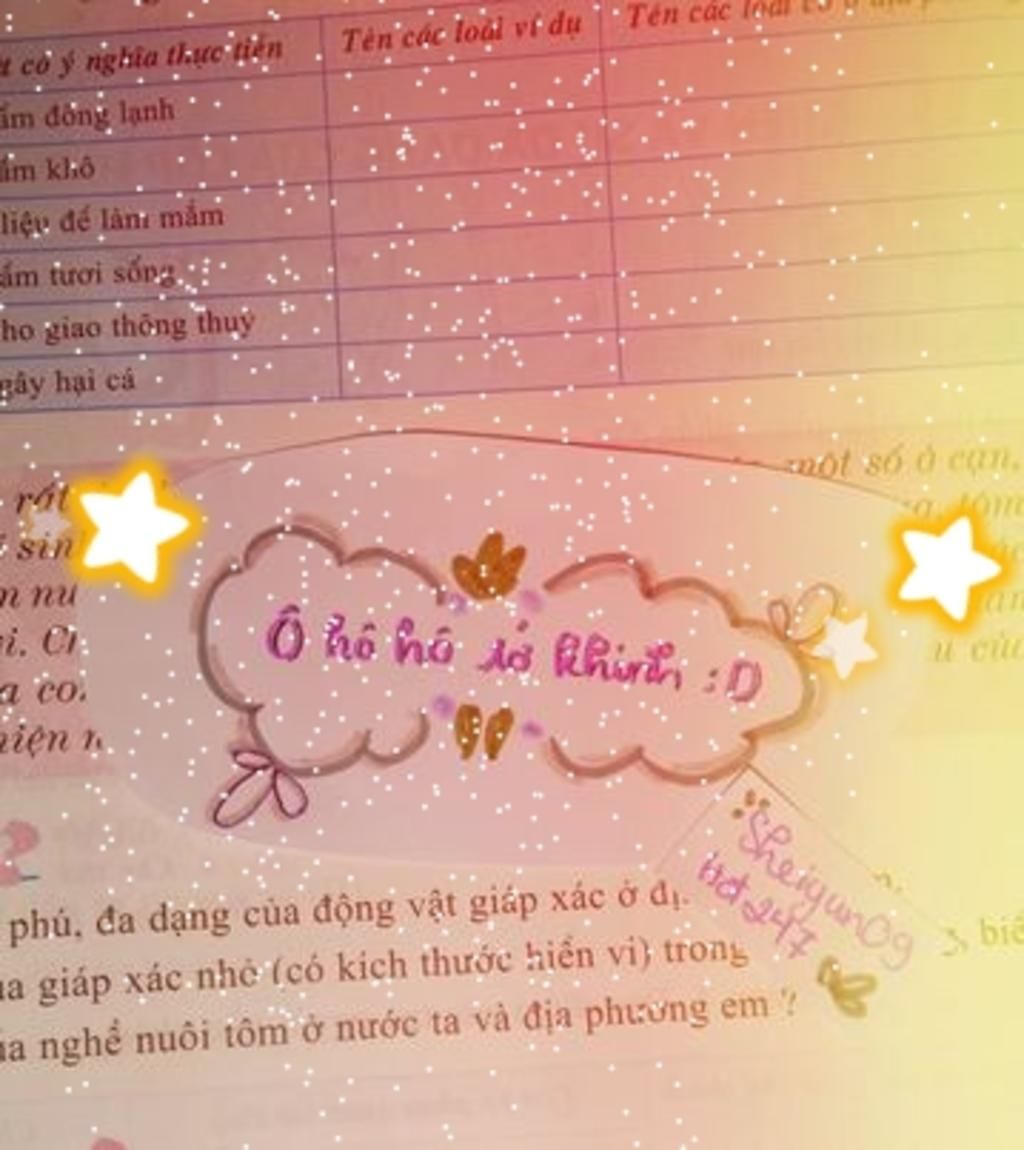 có ý nghĩa thực tiễn
Tên các loài ví dụ
Tên các loài có ở địa
đông lạnh
khô
liệu để làm mắm
tươi sống
ho giao thông thuỷ
gây hại cá
một số ở cạn,
rất
tôm
sin
n nu
i. Ch
u của
a co
hiện n
Ô hô hô :D
Sheiyun09
Hot247
phú, đa dạng của động vật giáp xác ở đị
ua giáp xác nhỏ (có kích thước hiển vi) trong
ủa nghề nuôi tôm ở nước ta và địa phương em ?